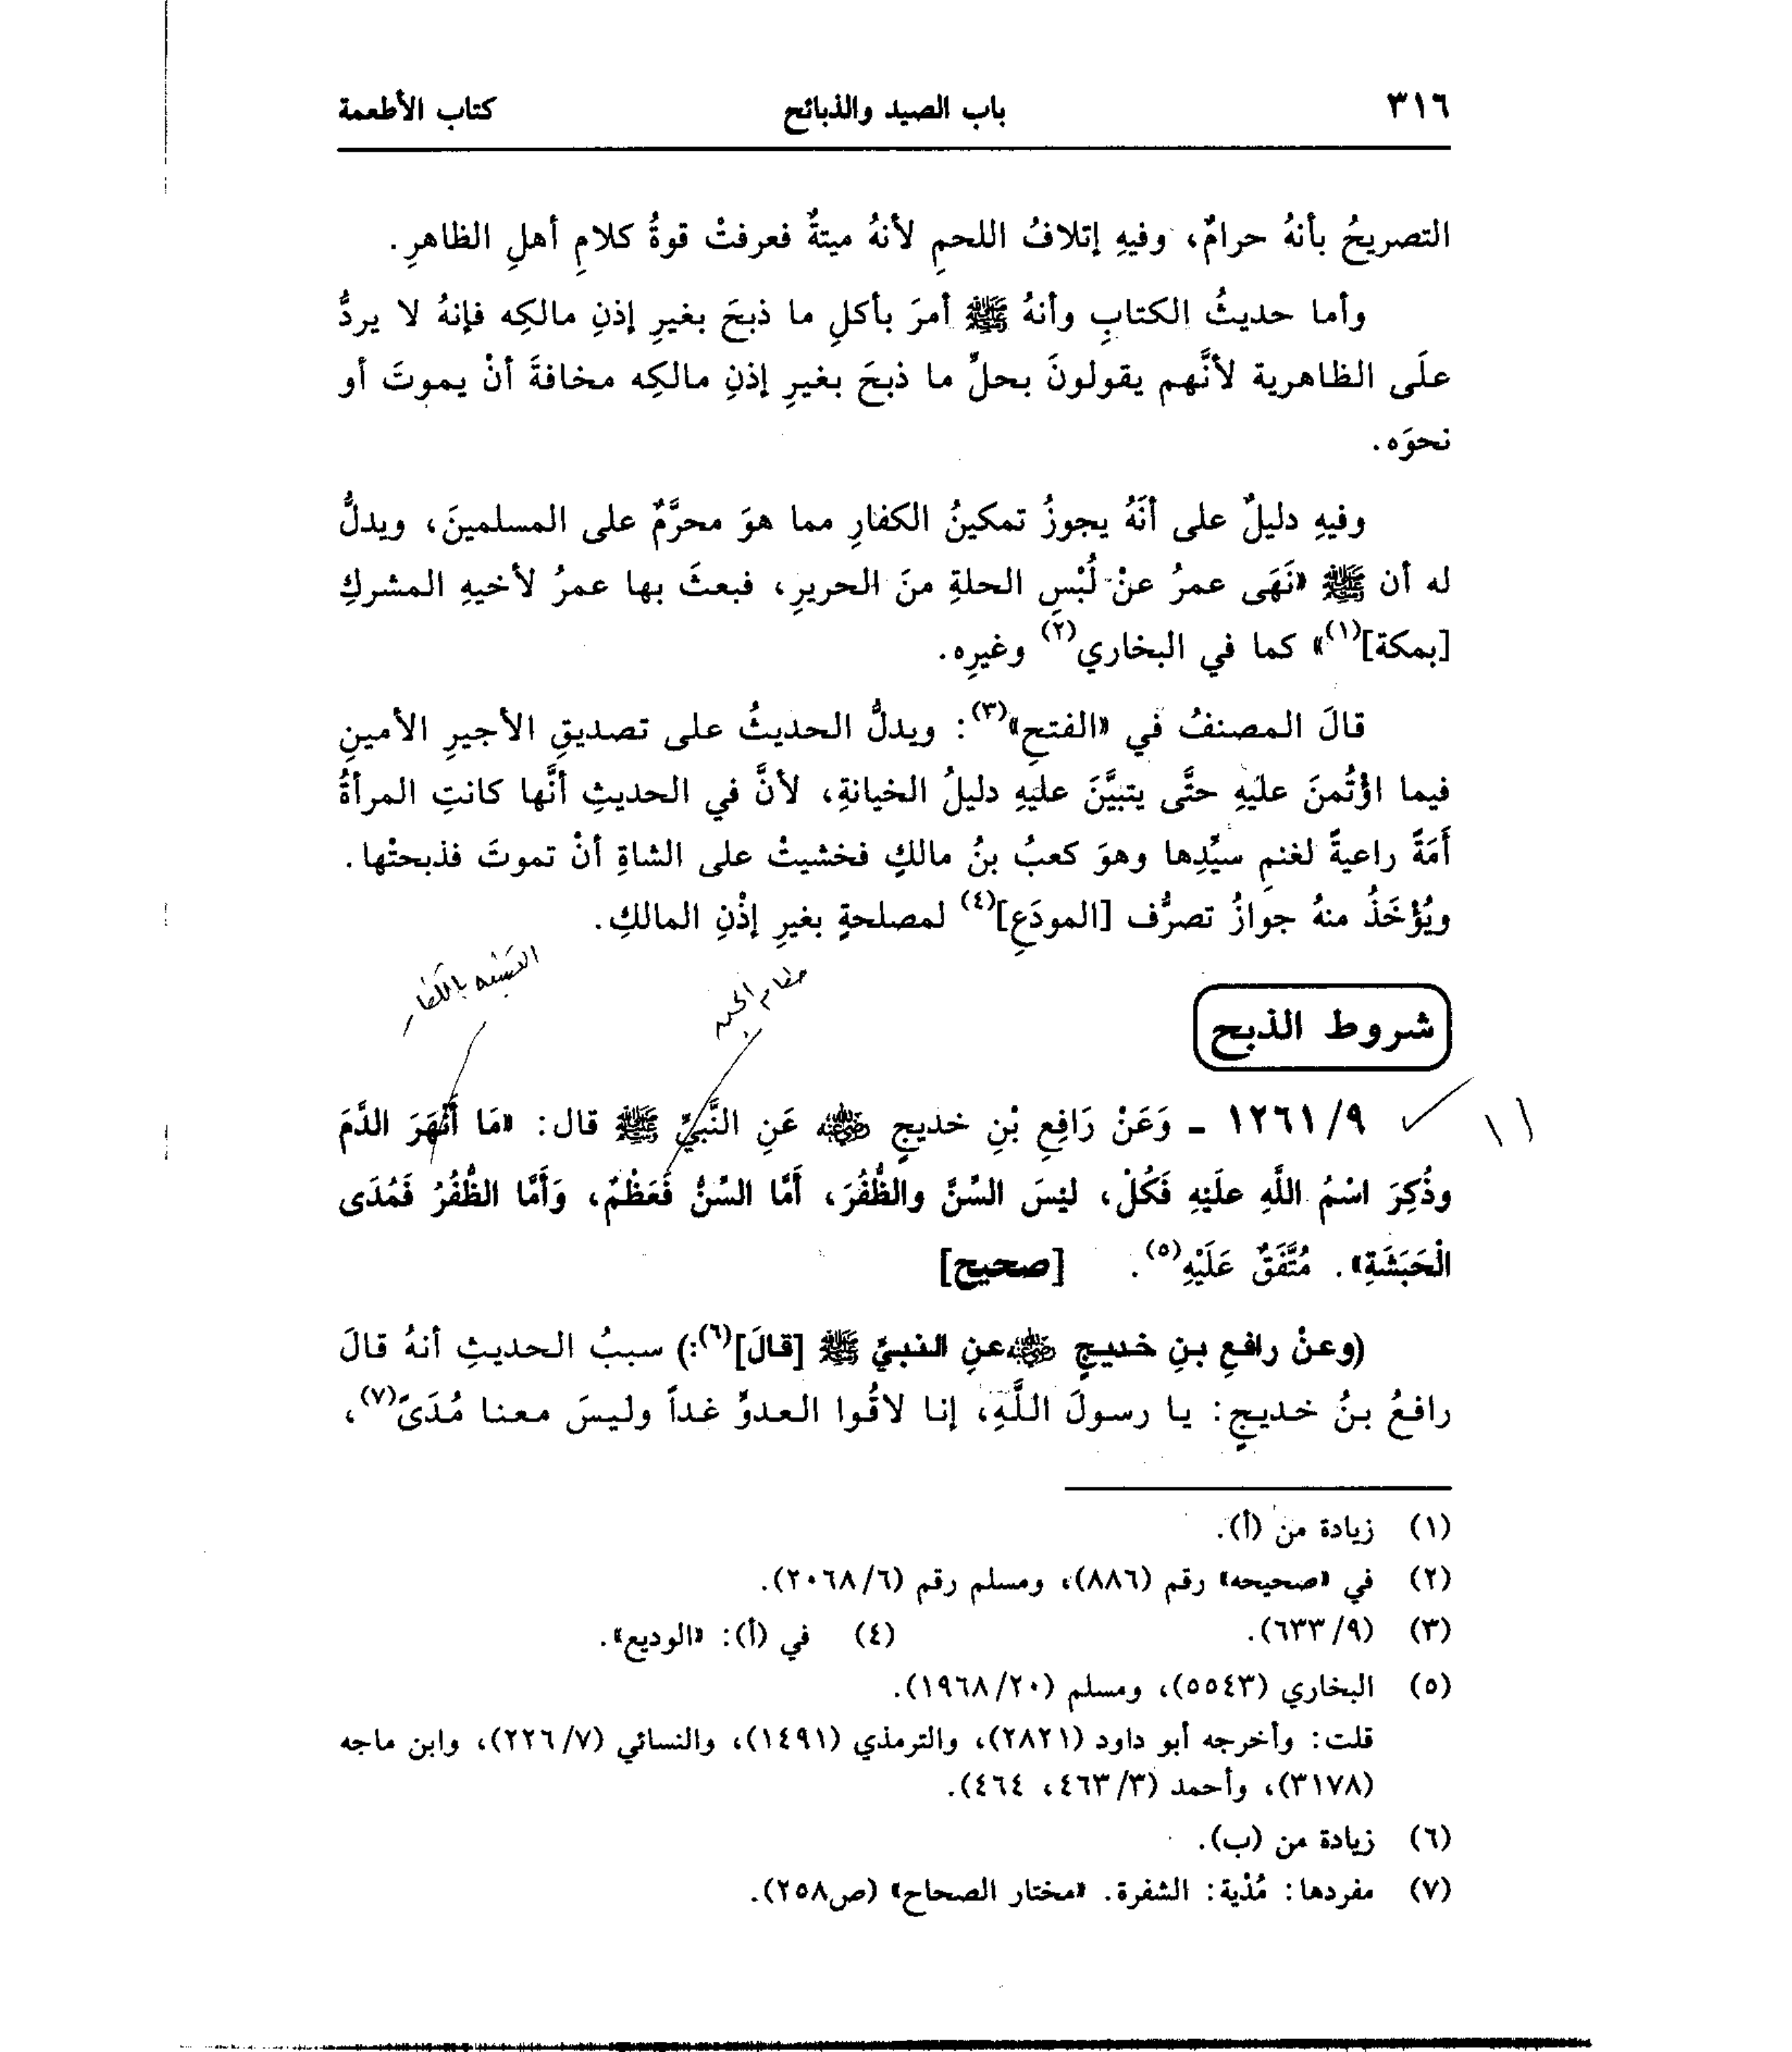 ٣١٦ باب الصيد والذبائح كتاب الأطعمة
التصريحُ بأنهُ حرامٌ، وفيهِ إتلافُ اللحمِ لأنهُ ميتةٌ فعرفتْ قوةُ كلامِ أهلِ الظاهرِ.
وأما حديثُ الكتابِ وأنهُ ﷺ أمرَ بأكلِ ما ذبحَ بغيرِ إذنِ مالكِه فإنهُ لا يردُّ
علَى الظاهرية لأنَّهم يقولونَ بحلِّ ما ذبحَ بغيرِ إذنِ مالكِه مخافةَ أنْ يموتَ أو
نحوَه.
وفيهِ دليلٌ على أنَهُ يجوزُ تمكينُ الكفارِ مما هوَ محرَّمٌ على المسلمينَ، ويدلُّ
له أن ﷺ «نَهَى عمرُ عنْ لُبْسِ الحلةِ منَ الحريرِ، فبعثَ بها عمرُ لأخيهِ المشركِ
[بمكة](١)» كما في البخاري(٢) وغيرِه.
قالَ المصنفُ في «الفتحِ»(٣): ويدلُّ الحديثُ على تصديقِ الأجيرِ الأمينِ
فيما اؤْتُمنَ عليَهِ حتَّى يتبيَّنَ عليَهِ دليلُ الخيانةِ، لأنَّ في الحديثِ أنَّها كانتِ المرأةُ
أَمَةً راعيةً لغنمِ سيِّدِها وهوَ كعبُ بنُ مالكٍ فخشيتْ على الشاةِ أنْ تموتَ فذبحتْها.
ويُؤْخَذُ منهُ جوازُ تصرُّف [المودَعِ](٤) لمصلحةٍ بغيرِ إذْنِ المالكِ.
شروط الذبح
١٢٦١/٩ ـ وَعَنْ رَافِعِ بْنِ خديجٍ رضي الله عنه عَنِ النَّبيِّ ﷺ قال: «مَا أَنْهَرَ الدَّمَ
وذُكِرَ اسْمُ اللَّهِ علَيْهِ فَكُلْ، ليْسَ السِّنَّ والظُّفُرَ، أَمَّا السِّنُّ فَعَظْمٌ، وَأَمَّا الظُّفُرُ فَمُدَى
الْحَبَشَةِ». مُتَّفَقٌ عَلَيْهِ(٥). [صحيح]
(وعنْ رافعِ بنِ خديجٍ رضي الله عنه عنِ النبيِّ ﷺ [قالَ](٦):) سببُ الحديثِ أنهُ قالَ
رافعُ بنُ خديجٍ: يا رسولَ اللَّهِ، إنا لاقُوا العدوِّ غداً وليسَ معنا مُدَىً(٧)،
(١) زيادة من (أ).
(٢) في «صحيحه» رقم (٨٨٦)، ومسلم رقم (٢٠٦٨/٦).
(٣) (٦٣٣/٩). (٤) في (أ): «الوديع».
(٥) البخاري (٥٥٤٣)، ومسلم (١٩٦٨/٢٠).
قلت: وأخرجه أبو داود (٢٨٢١)، والترمذي (١٤٩١)، والنسائي (٢٢٦/٧)، وابن ماجه
(٣١٧٨)، وأحمد (٤٦٣/٣، ٤٦٤).
(٦) زيادة من (ب).
(٧) مفردها: مُدْية: الشفرة. «مختار الصحاح» (ص٢٥٨).